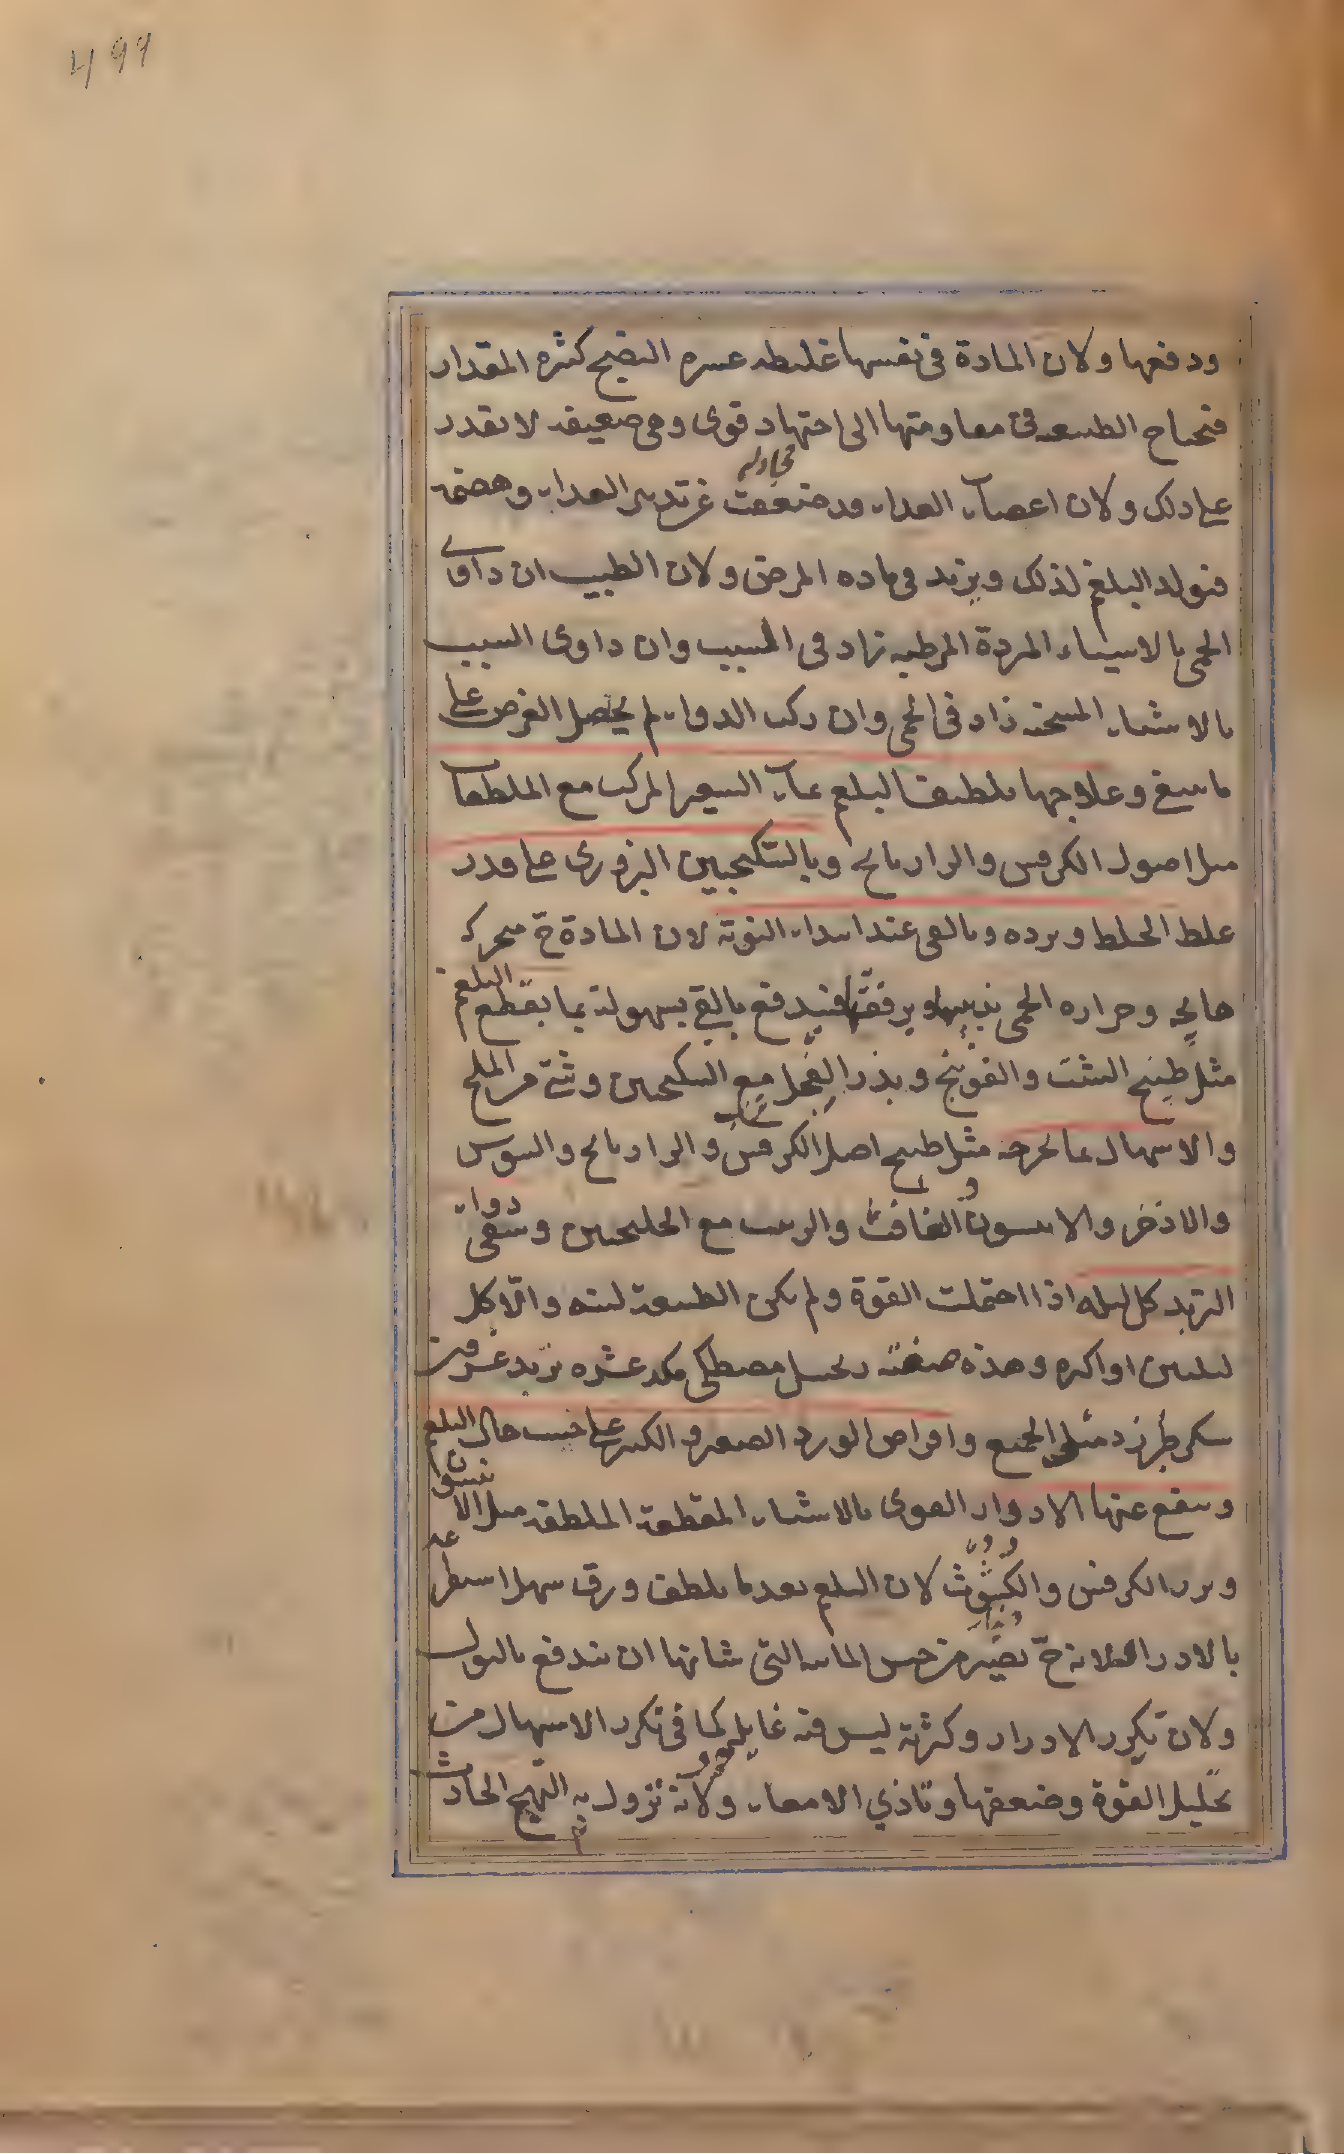 499
ودفعها ولان المادة فى نفسها غليظه عسره النضج كثره المقدار
فتحتاج الطبيعه فى مقاومتها الى اجتهاد قوى وهى ضعيفه لا تقدر
على ذلك ولان اعضاء الغداء قد ضعفت عن تدبير الغداء وهضمه
فتولد البلغم لذلك ويزيد فى ماده المرض ولان الطبيب ان داوى
الحمى بالاشياء المبردة المرطبه زاد فى السبب وان داوى السبب
بالاشياء المسخنه زاد فى الحمى وان ركب الدواء لم يحصل الغرض على
ما ينبغى وعلاجها تلطيف البلغم بماء الشعير المركب مع الملطفات
مثل اصول الكرفس والرازيانج وبالسكنجبين البزورى على قدر
غلظ الخلط وبرده وبالقى عند ابتداء النوبة لان المادة ح متحركه
هايجه وحراره الحمى تذيبها ويرققها فيندفع بالقئ بسهولة بما يقطع البلغم
مثل طبيخ الشبت والفوتنج وبذر الفجل مع السكنجبين وشئ من الملح
والاسهال بما يخرجه مثل طبيخ اصل الكرفس والرازيانج والسوس
والاذخر والانيسون والغافت والزبيب مع الجلنجبين وسقى دواء
التربد كل ليله اذا احتملت القوة ولم يكن الطبيعة لينه والا كل
ليلتين او اكثر وهذه صفته زنجبيل مصطكى مكد عشره تربد عشرين
سكر طبرزد مثل الجميع واقراص الورد الصغير والكبير على حسب حال البلغم
وينفع عنها الادرار القوى بالاشياء المقطعة الملطفه مثل الانيسون
وبزر الكرفس والكشوث لان البلغم بعد ما يلطف ورق سهل استفراغه
بالادرار لانه ح يصير من جنس المائيه التى شانها ان يندفع بالبول
ولان تكرر الادرار وكثرته ليس فيه غايله كما فى تكرر الاسهال من
تحليل القوة وضعفها وتاذي الامعاء ولانه تزول به التهيج الحادث